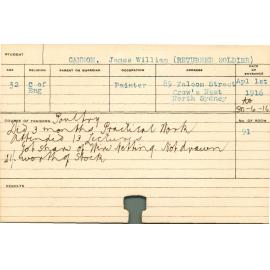 STUDENT
CANNON, James William (RETURNED SOLDIER)
AGE RELIGION PARENT OR GUARDIAN OCCUPATION ADDRESS DATE OF ENTRANCE
32 C of Eng Painter 89 Falcon Street Crow's Nest North Sydney Apl 1st 1916 to 30-6-16
COURSE OF TRAINING NO. OF ROOM
Poultry
Did 3 months' Practical Work 91
Attended 13 Lectures
Got share of Wire netting. Not drawn
worth of Stock
RESULTS